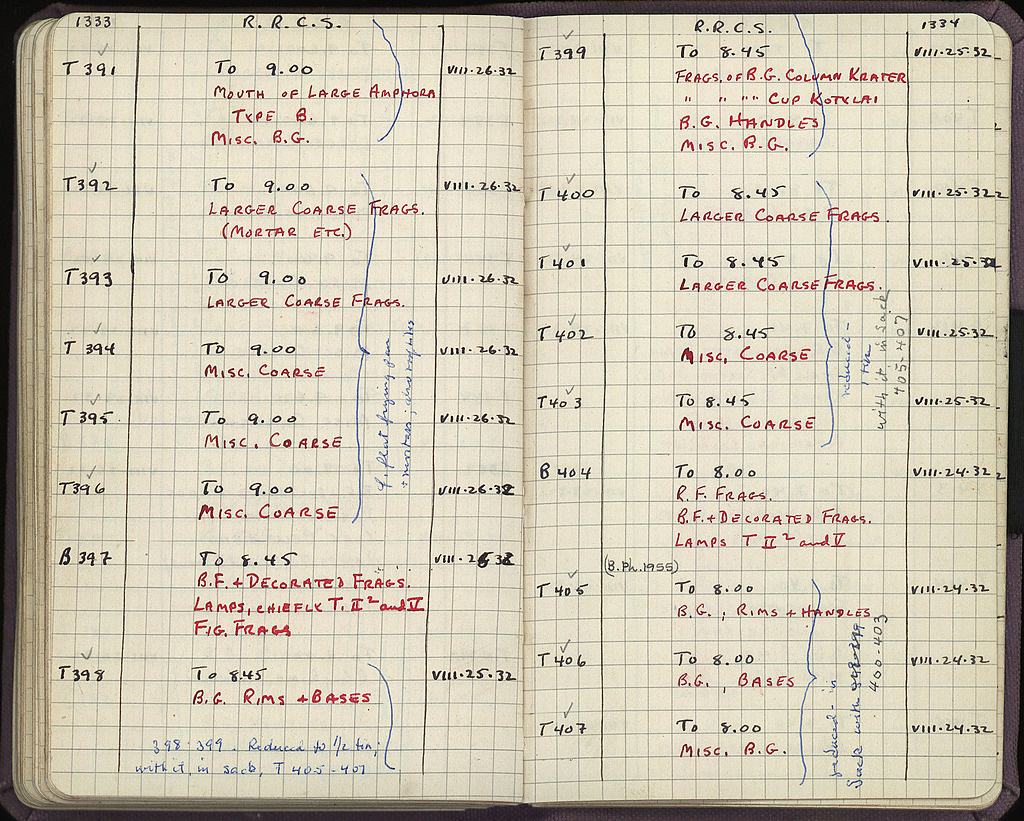 1333 R.R.C.S.
T 391 To 9.00 VIII.26.32
MOUTH OF LARGE AMPHORA
TYPE B.
MISC. B.G.
T 392 To 9.00 VIII.26.32
LARGER COARSE FRAGS.
(MORTAR ETC.)
T 393 To 9.00 VIII.26.32
LARGER COARSE FRAGS.
T 394 To 9.00 VIII.26.32
MISC. COARSE
T 395 To 9.00 VIII.26.32
MISC. COARSE
T 396 To 9.00 VIII.26.32
MISC. COARSE
flat frying pan
B 397 To 8.45 VIII.25.32
B.F. + DECORATED FRAGS.
LAMPS, CHIEFLY T. II² and V
FIG. FRAGS
T 398 To 8.45 VIII.25.32
B.G. RIMS + BASES
398-399. Reduced to 1/2 tin;
with it, in sack, T 405-407
R.R.C.S. 1334
T 399 To 8.45 VIII.25.32
FRAGS. OF B.G. COLUMN KRATER
" " " " CUP KOTYLAI
B.G. HANDLES
MISC. B.G.
T 400 To 8.45 VIII.25.32
LARGER COARSE FRAGS.
T 401 To 8.45 VIII.25.32
LARGER COARSE FRAGS.
T 402 To 8.45 VIII.25.32
MISC. COARSE
T 403 To 8.45 VIII.25.32
MISC. COARSE
reduced -
1 tin
with it in sack
405-407
B 404 To 8.00 VIII.24.32
R.F. FRAGS.
B.F. + DECORATED FRAGS.
LAMPS T II² and V
(B. Ph. 1955)
T 405 To 8.00 VIII.24.32
B.G., RIMS + HANDLES
T 406 To 8.00 VIII.24.32
B.G., BASES
T 407 To 8.00 VIII.24.32
MISC. B.G.
reduced - in
sack with 398-399
400-403